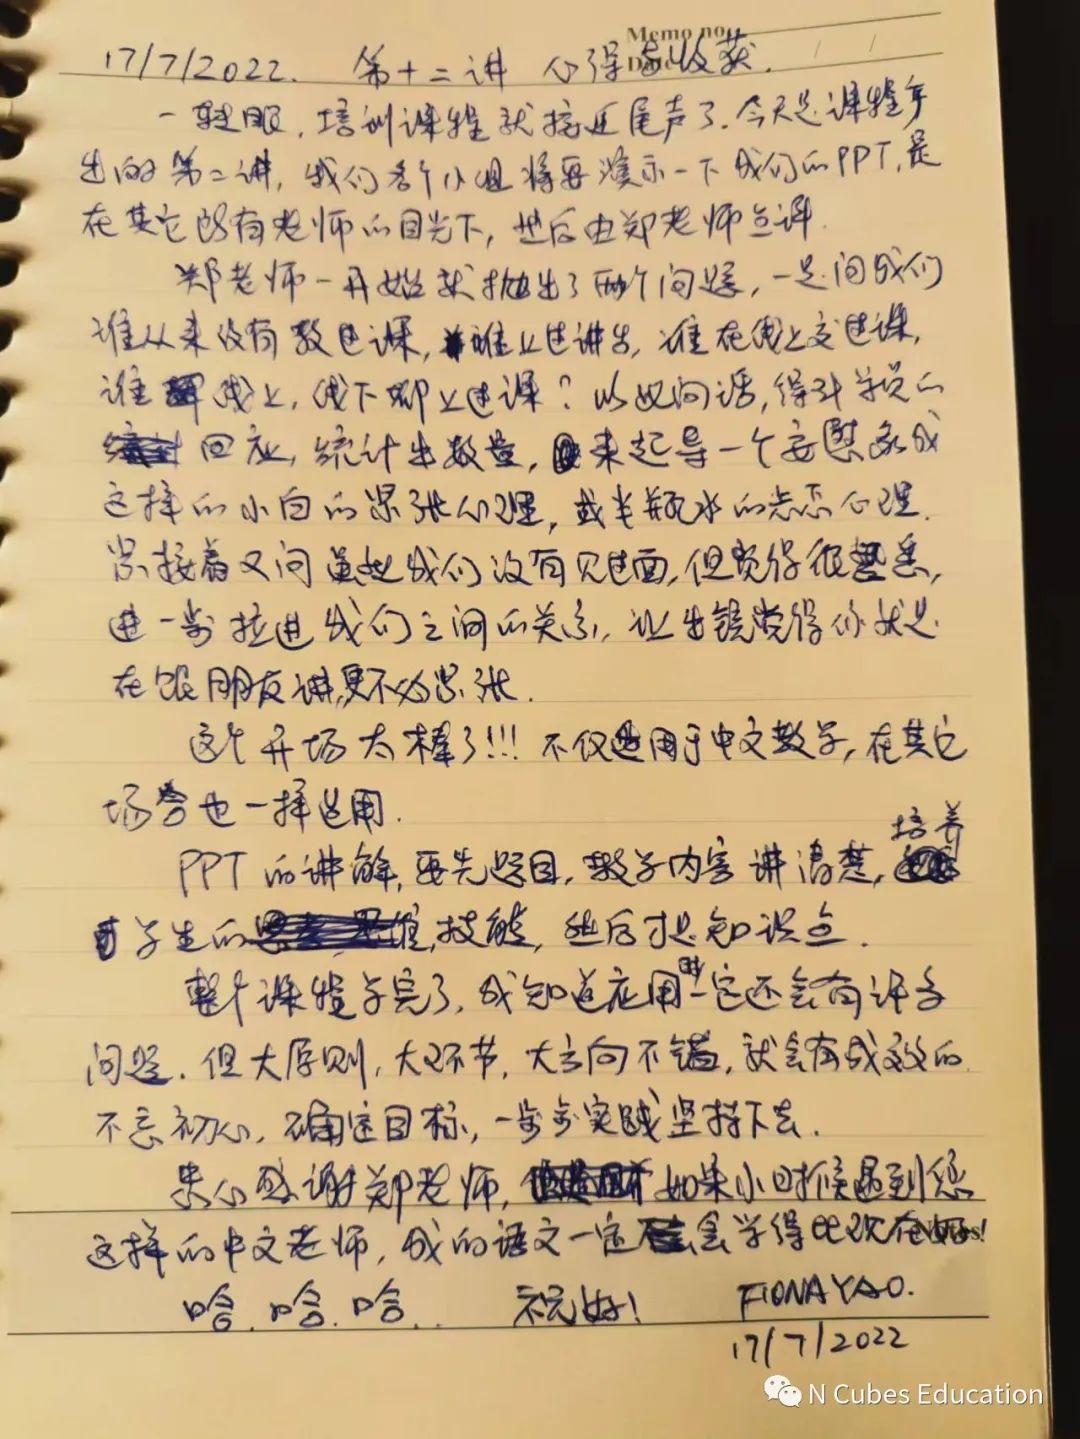 Memo no.
17/7/2022. 第十二讲 心得与收获.
一转眼,培训课程就接近尾声了.今天是课程
出的第二讲,我们各个小组将要演示一下我们的PPT,是
在其它所有老师的目光下,然后由郑老师点评.
郑老师一开始就抛出了两个问题,一是问我们
谁从来没有教过课,谁上过讲台,谁在线上交过课,
谁线上,线下都上过课?以如问话,得到学员的
回应,统计出数量,来起导一个安慰象我
这样的小白的紧张心理,或半瓶水的忐忑心理.
紧接着又问虽然我们没有见过面,但觉得很熟悉,
进一步拉进我们之间的关系,让出镜觉得你就是
在跟朋友讲,更不必紧张.
这个开场太棒了!!!不仅适用于中文教学,在其它
场合也一样适用.
PPT的讲解,要先题目,教学内容讲清楚,培养
学生的技能,然后才是知识点.
整个课程学完了,我知道应用时一定还会有许多
问题.但大原则,大环节,大方向不错,就会有成效的.
不忘初心,确定目标,一步步实践坚持下去.
衷心感谢郑老师,如果小时候遇到您
这样的中文老师,我的语文一定会学得比现在好!
哈.哈.哈.. 祝好! FIONA YAO.
17/7/2022
N Cubes Education